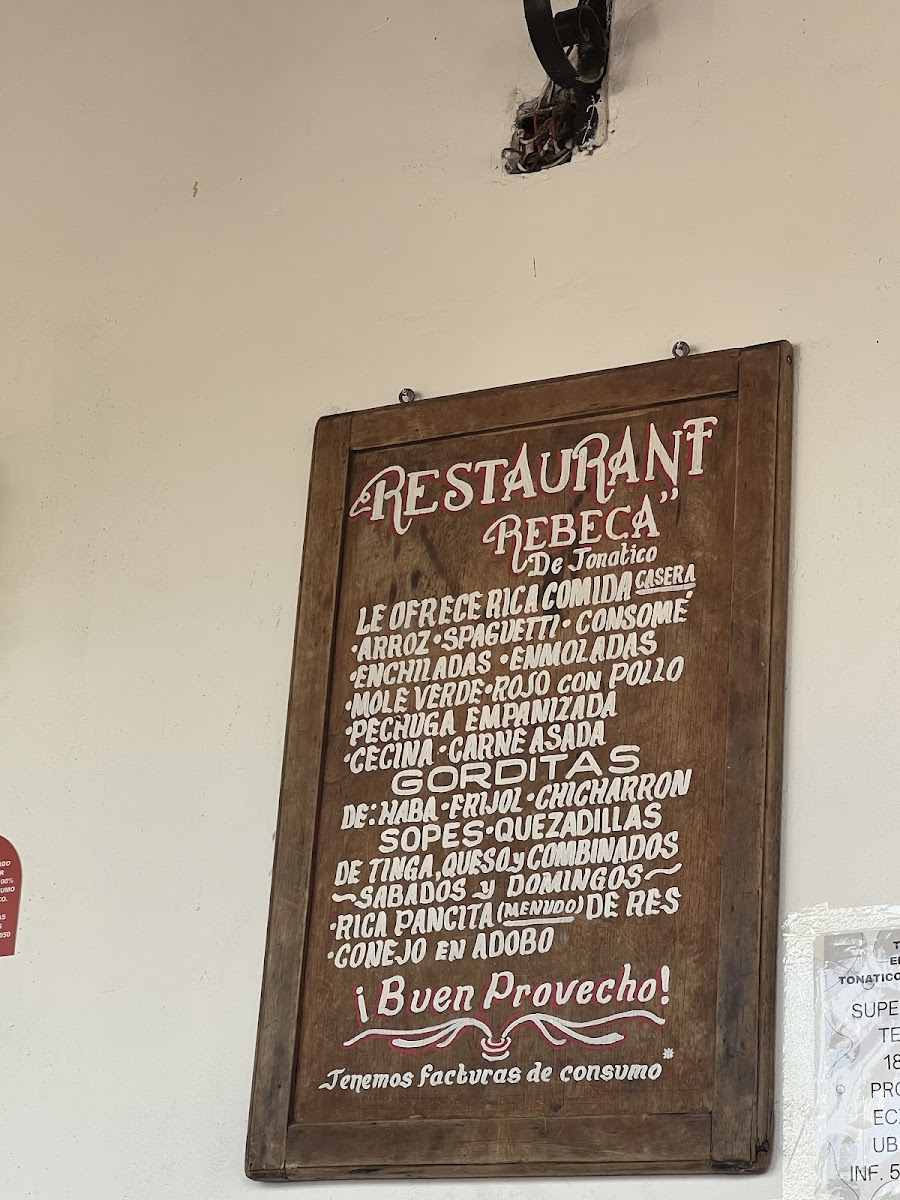 "RESTAURANT
REBECA"
De Tonatico
LE OFRECE RICA COMIDA CASERA
•ARROZ •SPAGUETTI • CONSOMÉ
•ENCHILADAS •ENMOLADAS
•MOLE VERDE•ROJO CON POLLO
•PECHUGA EMPANIZADA
•CECINA •CARNE ASADA
GORDITAS
DE: HABA •FRIJOL •CHICHARRON
SOPES•QUEZADILLAS
DE TINGA, QUESO y COMBINADOS
~SABADOS y DOMINGOS~
•RICA PANCITA (MENUDO) DE RES
•CONEJO EN ADOBO
¡Buen Provecho!
Tenemos facturas de consumo*
TONATICO
SUPE
TE
18
PRO
UB
INF. 5